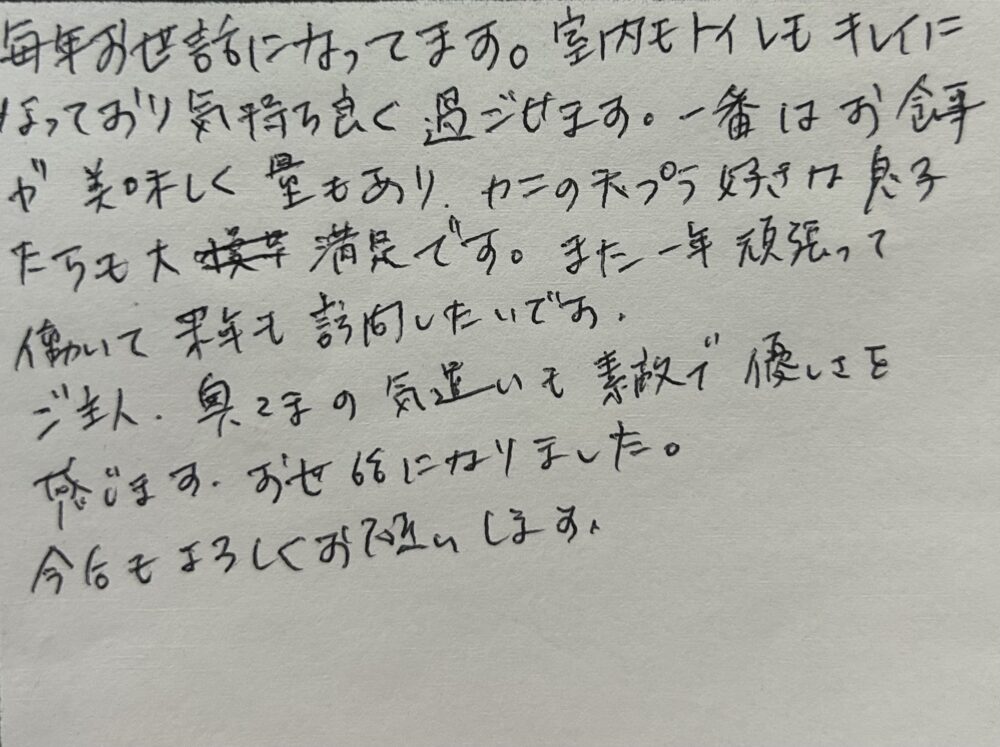 毎年お世話になってます。室内もトイレもキレイに
なっており気持ち良く過ごせます。一番はお食事
が美味しく量もあり、カニの天プラ好きな息子
たちも大満足です。また一年頑張って
働いて来年も訪問したいです。
ご主人、奥さまの気遣いも素敵で優しさを
感じます。お世話になりました。
今後もよろしくお願いします。